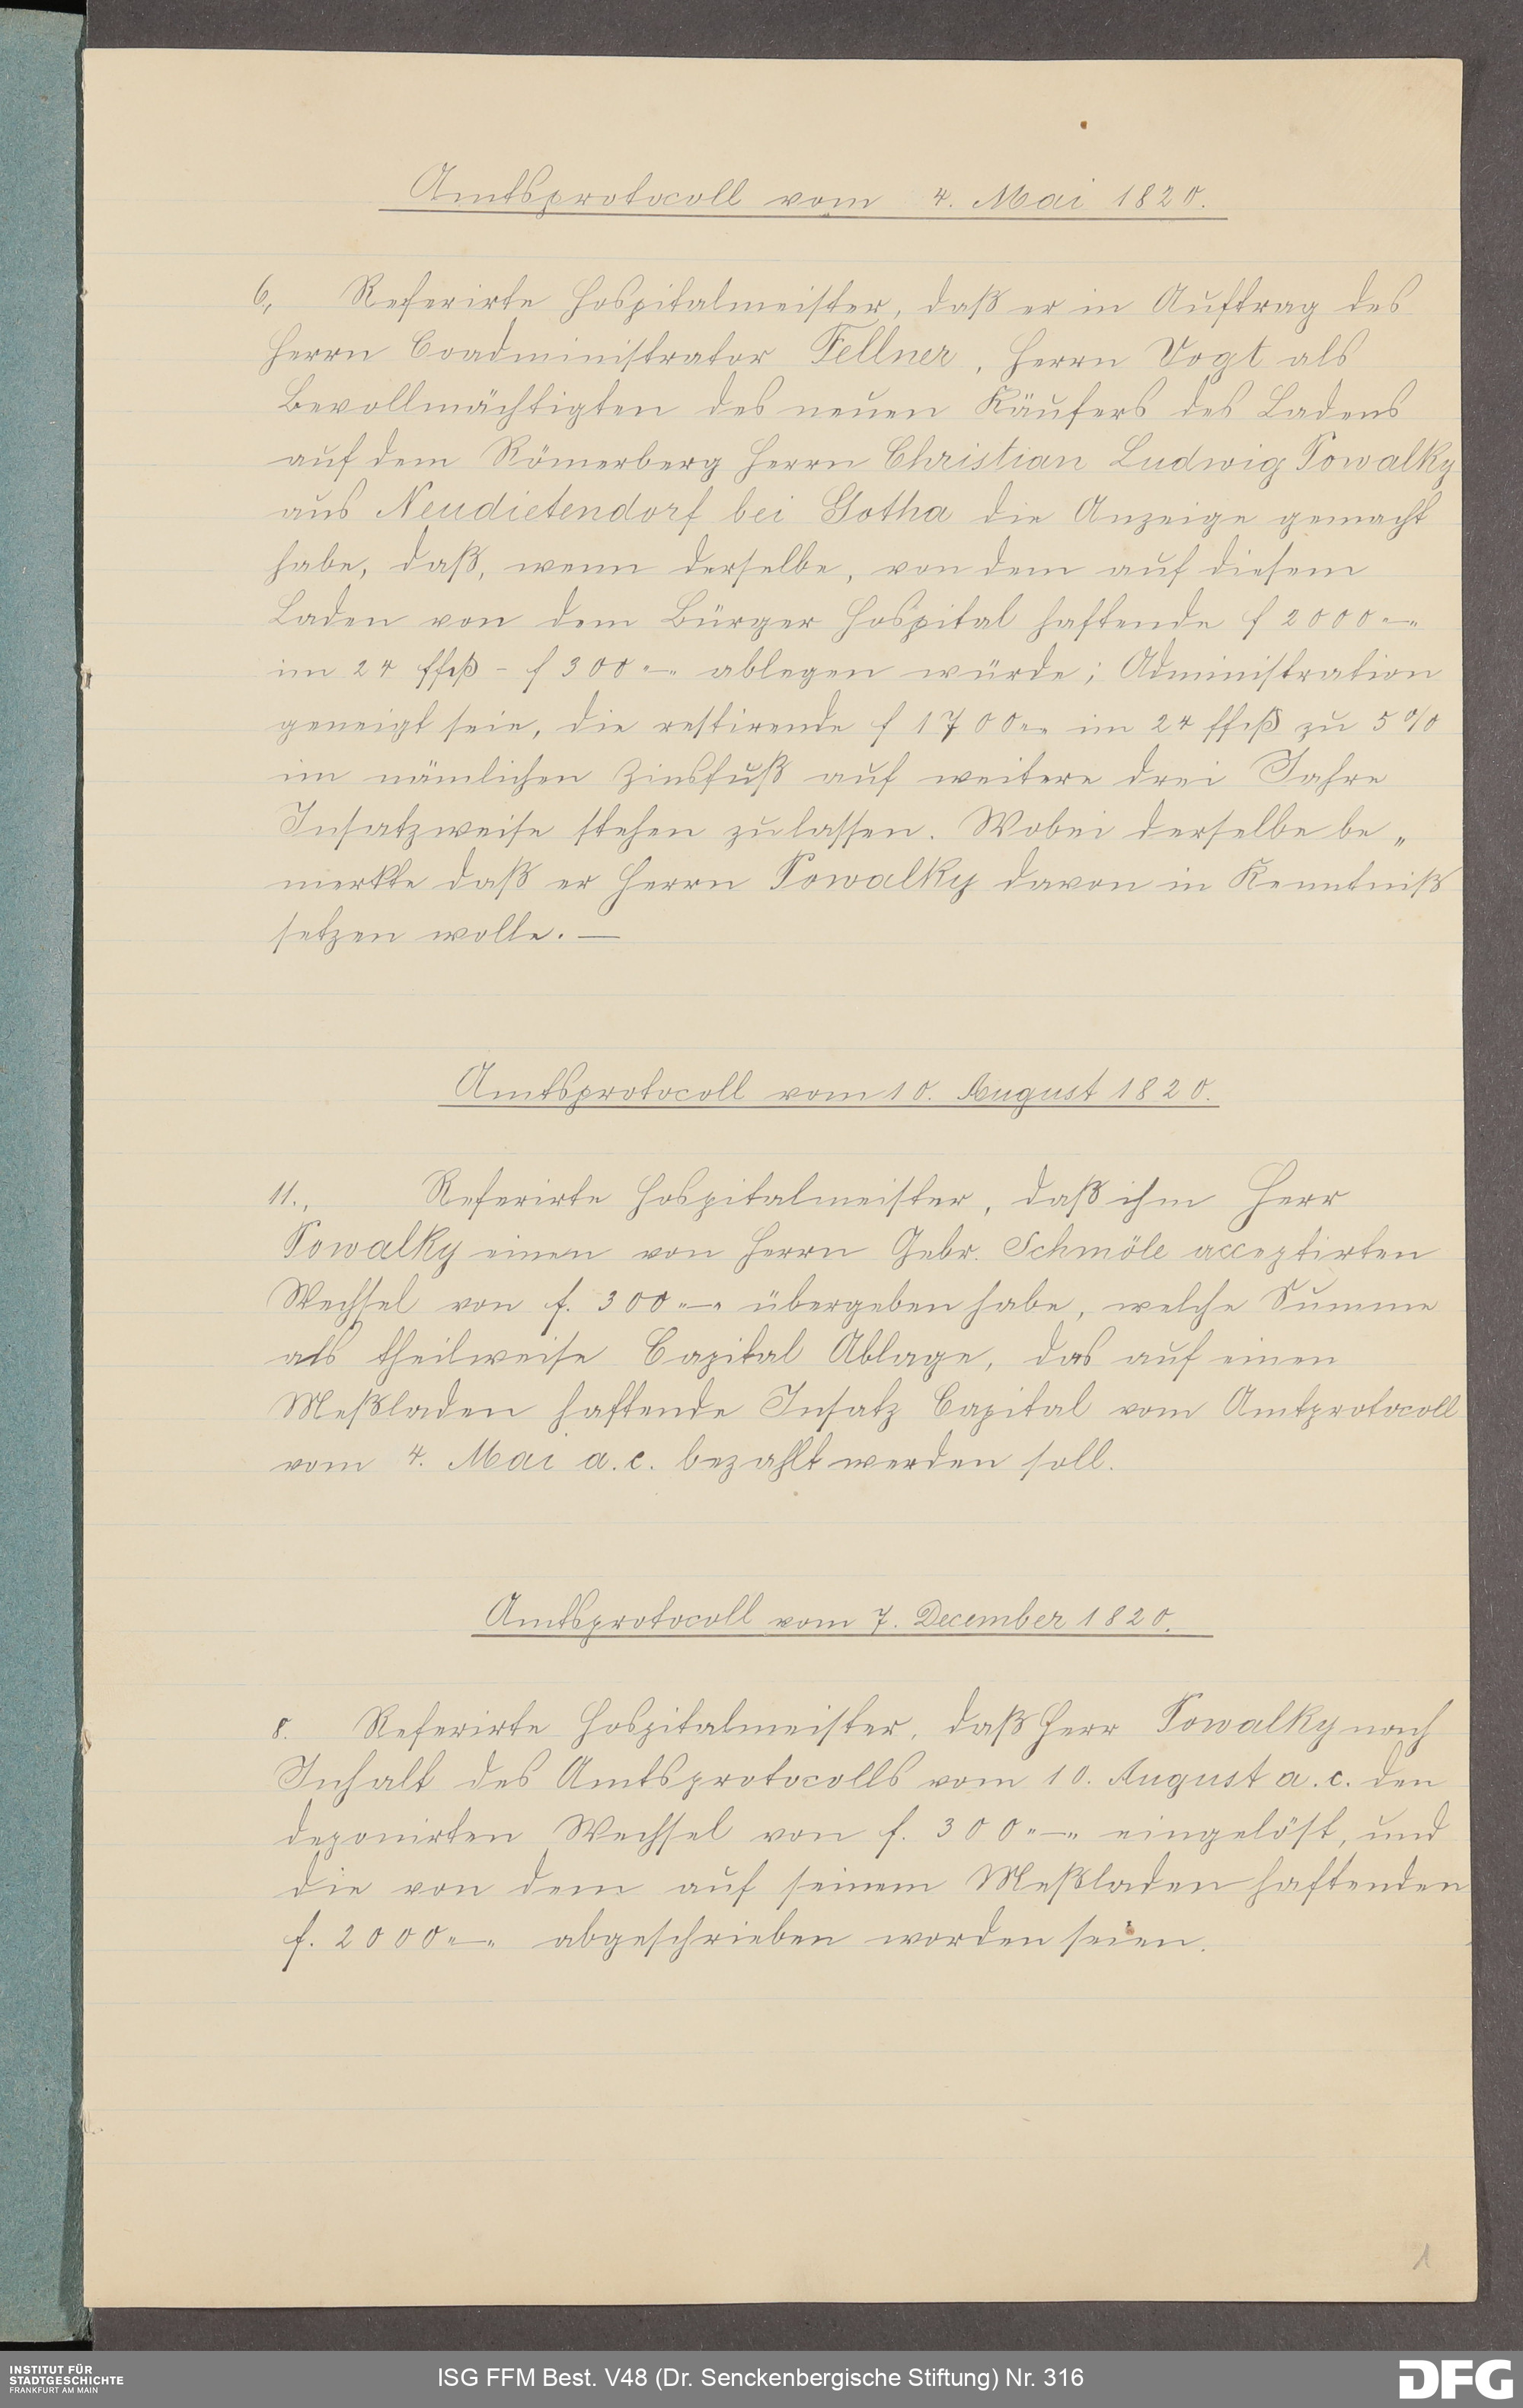 Amtsprotocoll vom 4. Mai 1820.
6., Referirte Hospitalmeister, daß er in Auftrag des
Herrn Coadministrator Fellner, Herrn Vogt als
Bevollmächtigten des neuen Käufers des Ladens
auf dem Römerberg Herrn Christian Ludwig Powalky
aus Neudietendorf bei Gotha die Anzeige gemacht
habe, daß, wenn derselbe, von dem auf diesem
Laden von dem Bürger Hospital haftende f 2000 „—„
im 24 ffß - f 300 „—„ ablegen würde; Administration
geneigt seie, die restirende f 1700 „—„ im 24 ffß zu 5%
im nämlichen Zinsfuß auf weitere drei Jahre
Insatzweise stehen zu lassen. Wobei derselbe be„
merkte daß er Herrn Powalky davon in Kenntniß
setzen wolle. —
Amtsprotocoll vom 10. August 1820.
11., Referirte Hospitalmeister, daß ihm Herr
Powalky einen von Herrn Gebr. Schmöle acceptirten
Wechsel von f. 300 „—„ übergeben habe, welche Summe
als theilweise Capital Ablage, das auf einen
Meßladen haftende Insatz Capital vom Amtprotocoll
vom 4. Mai a. c. bezahlt werden soll.
Amtsprotocoll vom 7. December 1820.
8. Referirte Hospitalmeister, daß Herr Powalky nach
Inhalt des Amtsprotocolls vom 10. August a. c. den
deponirten Wechsel von f. 300 „—„ eingelöst, und
die von dem auf seinem Meßladen haftenden
f. 2000 „—„ abgeschrieben worden seien.
1
INSTITUT FÜR
STADTGESCHICHTE
FRANKFURT AM MAIN
ISG FFM Best. V48 (Dr. Senckenbergische Stiftung) Nr. 316
DFG